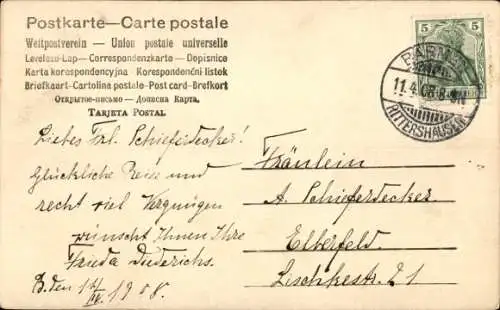 Postkarte—Carte postale
Weltpostverein — Union postale universelle
Levelezo-Lap—Correspondenzkarte—Dopisnice
Karta korespondencyjna Korespondenční listek
Briefkaart-Cartolina postale-Post card-Brefkort
Открытое-письмо — Дописна Карта.
Tarjeta Postal
5 5
BARMEN
11.4.08.8-9N
RITTERSHAUSEN
Liebes Frl. Schieferdecker!
Glückliche Reise und
recht viel Vergnügen
wünscht Ihnen Ihre
Frieda Diederichs.
B. den IV. 1908.
Fräulein
A. Schieferdecker
Elberfeld.
Lischkestr. 21